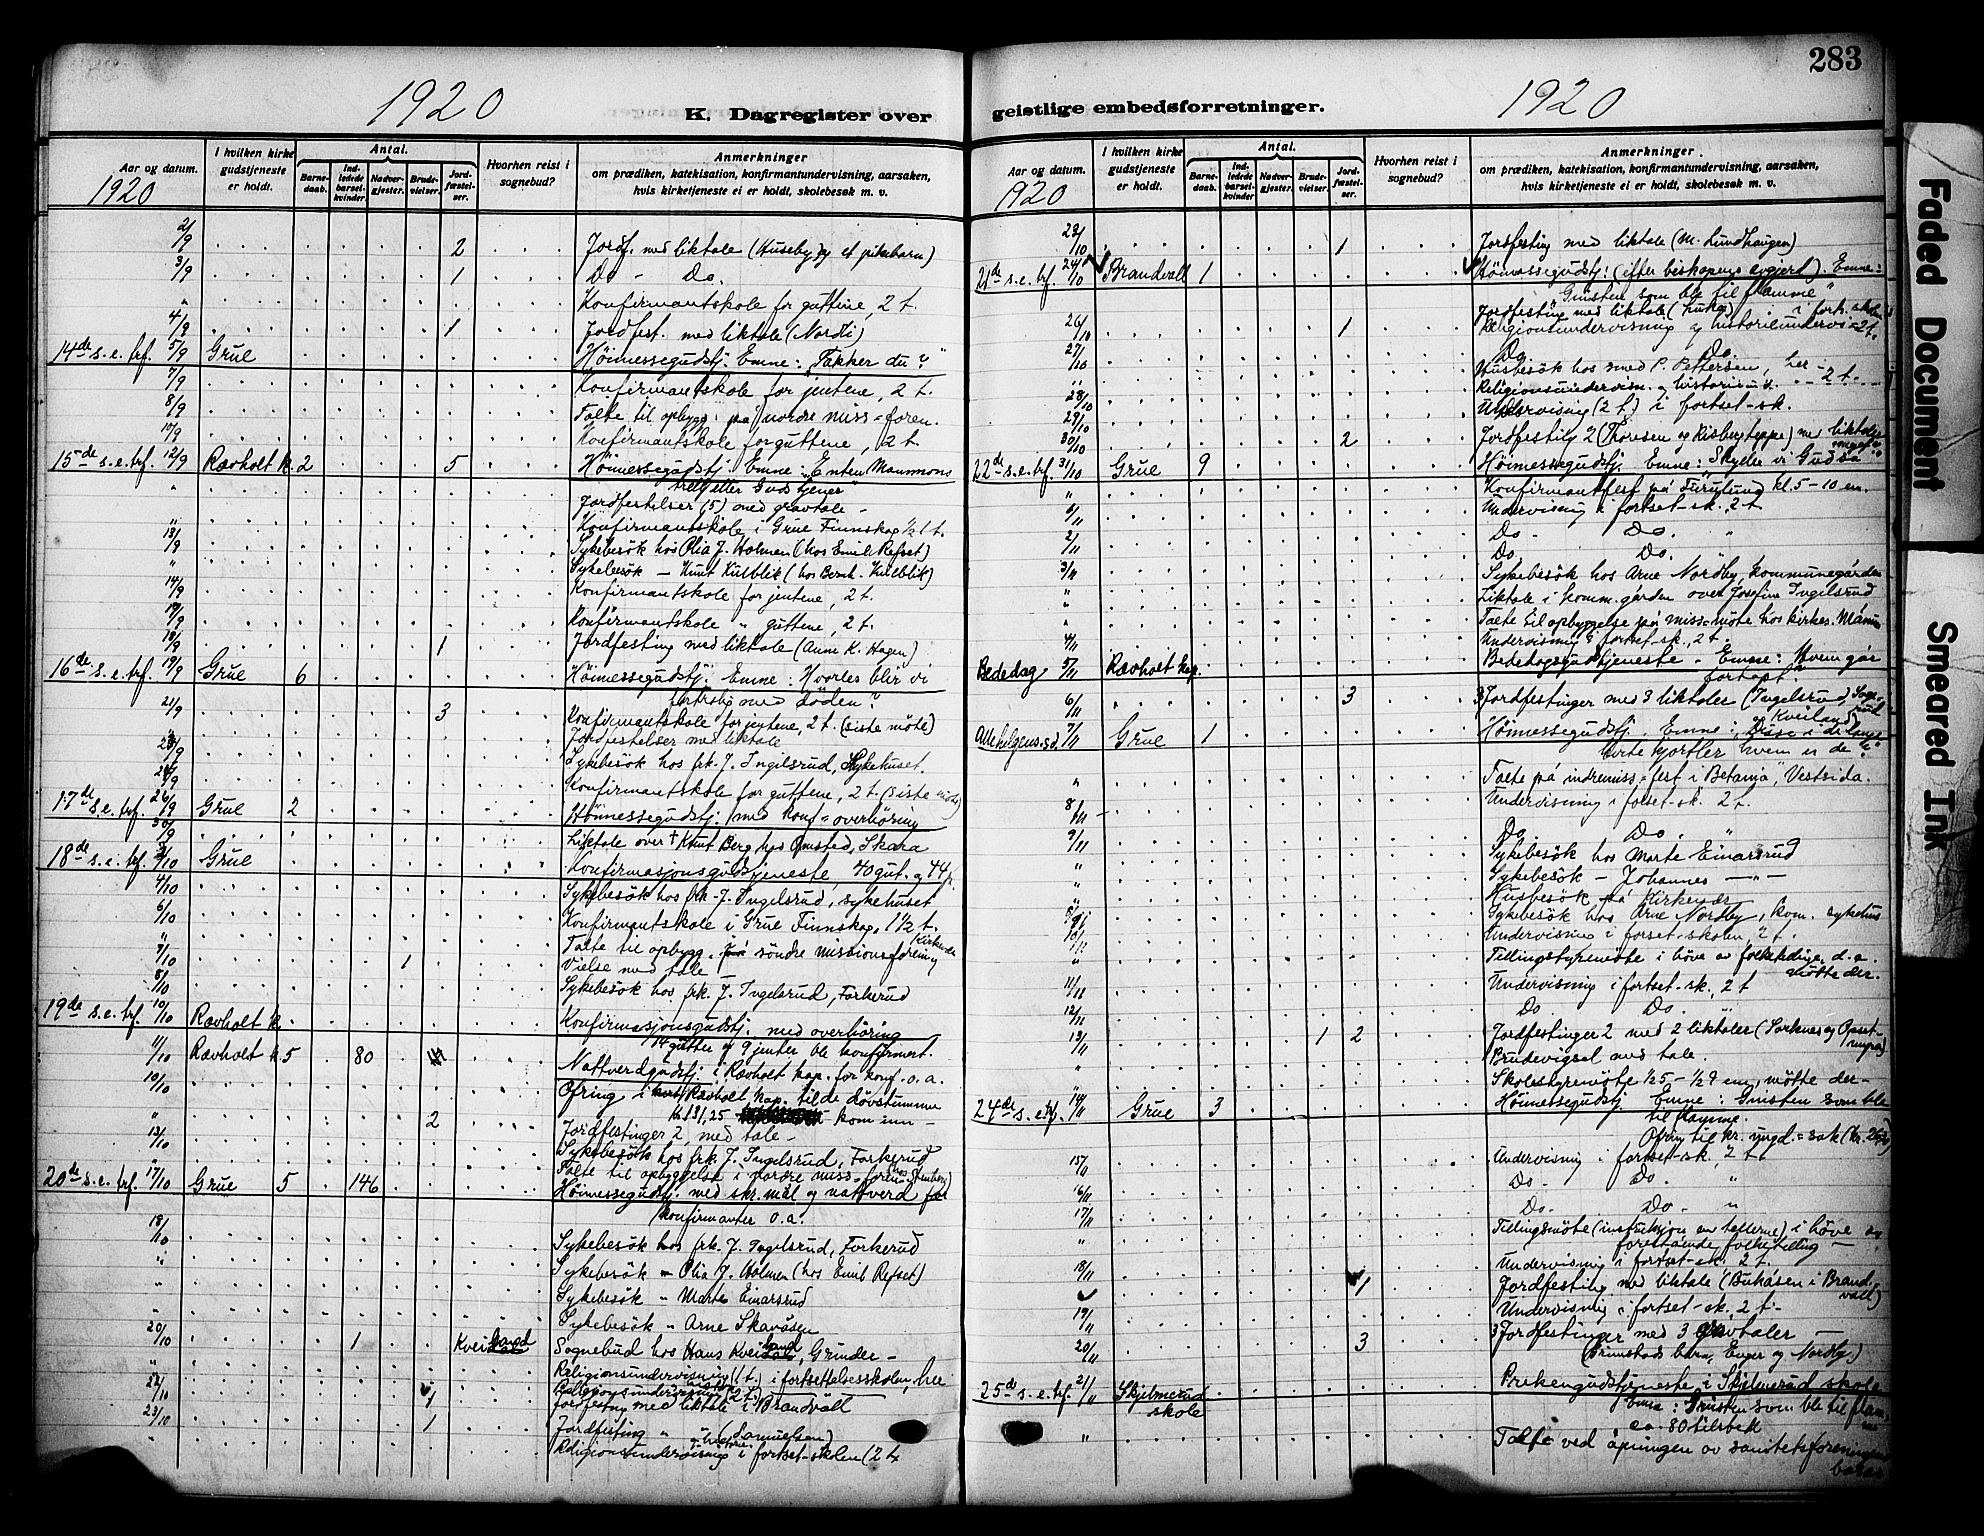 283
1920
K. Dagregister over
geistlige embedsforretninger.
1920
Aar og datum.
1920
I hvilken kirke gudstjeneste er holdt.
Antal.
Barnedaab.
Indledede barselkvinder
Nadvergjester.
Brudevielser.
Jordfæstelser.
Hvorhen reist i sognebud?
Anmerkninger
om prædiken, katekisation, konfirmantundervisning, aarsaken,
hvis kirketjeneste ei er holdt, skolebesøk m. v.
2/9 2 Jordf. med liktale (Huseby og et pikebarn)
3/9 1 Do - Do.
" Konfirmantskole for guttene, 2 t.
4/9 1 Jordfest. med liktale (Nordli)
14de s.e.trf. 5/9 Grue Höimessegudstj. Emne: "Takker du?"
7/9 Konfirmantskole for jentene, 2 t.
8/9 Talte til opbygg. på nordre miss=foren.
10/9 Konfirmantskole for guttene, 2 t.
15de s.e.trf. 12/9 Ravholt k. 2 5 Höimessegudstj. Emne: "Enten Mammons
trell eller Guds tjener"
" Jordfestelser (5) med gravtale -
" Konfirmantskole i Grue Finnskog 1½ t.
13/9 Sykebesök hos Olia J. Holmen (hos Emil Refset)
" Sykebesök — Knut Kulblik (hos Bernh. Kulblik)
14/9 Konfirmantskole for jentene, 2 t.
17/9 Konfirmantskole " guttene, 2 t.
18/9 1 Jordfesting med liktale (Anne K. Hagen)
16de s.e.trf. 19/9 Grue 6 Höimessegudstj. Emne: Hvorles blir vi
fortrolig med döden?
21/9 3 Konfirmantskole for jentene, 2 t. (siste möte)
Jordfestelser med liktale
23/9 Sykebesök hos frk. J. Ingelsrud, Sykehuset.
24/9 Konfirmantskole for guttene, 2 t. (siste möte)
17de s.e.trf. 26/9 Grue 2 Höimessegudstj. med konf=overhöring
30/9 Liktale over † Knut Berg hos Omsted, Skara
18de s.e.trf. 3/10 Grue Konfirmasjonsgudstjeneste, 40 gut. og 44 j.
4/10 Sykebesök hos frk. J. Ingelsrud, sykehuset
6/10 Konfirmantskole i Grue Finnskog, 1½ t.
" Talte til opbygg. på söndre missionsforening Kirkenær
7/10 1 Vielse med tale
8/10 Sykebesök hos frk. J. Ingelsrud, Forkerud
19de s.e.trf. 10/10 Ravholt k. Konfirmasjonsgudstj. med overhöring
14 gutter og 9 jenter ble konfirmert.
11/10 Ravholt k. 5 80 Nattverdgudstj. i Ravholt kap. for konf. o.a.
10/10 Ofring i Ravholt kap. til de dövstumme
kr. 131,25 kom inn -
" 2 Jordfestinger 2, med tale -
13/10 Sykebesök hos frk. J. Ingelsrud, Forkerud
Talte til opbyggelse i nordre miss=foren.
20de s.e.trf. 17/10 Grue 5 146 Höimessegudstj. med skr.mål og nattverd for
konfirmanter o.a.
18/10 Sykebesök hos frk. J. Ingelsrud, Forkerud
" Sykebesök " Olia J. Holmen (hos Emil Refset)
" Sykebesök " Marte Einarsrud
" Sykebesök " Arne Skavåsen
20/10 1 Kveiland Sognebud hos Hans Kveiland, Grinder -
" Religionsundervisning (1 t.) i fortsettelsesskolen, her
22/10 Religionsundervisning (2 t.)
1 Jordfesting med liktale i Brandvåll
23/10 1 Jordfesting " " (Samuelsen)
Religionsundervisning i fortset=skolen (2 t.
Aar og datum.
1920
I hvilken kirke gudstjeneste er holdt.
Antal.
Barnedaab.
Indledede barselkvinder
Nadvergjester.
Brudevielser.
Jordfæstelser.
Hvorhen reist i sognebud?
Anmerkninger.
om prædiken, katekisation, konfirmantundervisning, aarsaken,
hvis kirketjeneste ei er holdt, skolebesøk m. v.
23/10 1 Jordfesting med liktale (M. Lundhaugen)
21de s.e.trf. 24/10 Brandvall 1 Höimessegudstj. (efter biskopens avgjerd). Emne:
"Gnisten som ble til flamme"
26/10 1 Jordfesting med liktale
Religionsundervisning og historieundervis. = 2 t.
27/10 Do. Do.
" Husbesök hos smed P. Pettersen, her -
28/10 Religionsundervisn. og historieu. - 2 t.
29/10 Undervisning (2 t.) i fortset-sk.
30/10 2 Jordfesting 2 (Thoresen og Risbergseppe) med liktale
22de s.e.trf. 31/10 Grue 9 Höimessegudstj. Emne: Skylder vi Gud så
meget?
" Konfirmantfest på Furulund kl. 5-10 em.
Undervisning i fortset-sk. 2 t
2/11 Do - Do. "
3/11 Do Do.
" Sykebesök hos Arne Nordby, kommunegården
" Liktale i komm.gården over Josefine Ingelsrud
" Talte til opbyggelse på miss=möte hos kirkes.
4/11 Undervisning i fortset-sk., 2 t.
Bededag 5/11 Ravholt kap. Bededagsgudstjeneste. Emne: Hvem går
fortapt?
6/11 3 3 Jordfestinger med 3 liktaler (Ingelsrud,
Kveiland)
Allehelgens.sd. 7/11 Grue 1 Höimessegudstj. Emne: "Disse i de lange
hvite kjortler, hvem er de?"
" Talte på indremiss=fest i "Betania", Vestsida.
8/11 Undervisning i fotset-sk. 2 t.
9/11 Do. Do. "
" Sykebesök hos Marte Einarsrud
" Sykebesök — Johannes — " —
" Husbesök på Kirkenær
Sykebesök hos Arne Nordby, kom. sykehus
10/11 Undervisning i fortset-skolen, 2 t.
" Tellingstyremöte i höve av folketelling. d. a.
Mötte der.
11/11 Undervisning i fortset-sk., 2 t
12/11 Do Do. "
13/11 1 2 Jordfestinger 2 med 2 liktaler
" Brudevigsel med tale.
Skolestyremöte ½5 - ½9 em, mötte der -
24de s.e.trf. 14/11 Grue 3 Höimessegudstj. Emne: Gnisten som ble
til flamme.
Ofring til kr. ungd.=sak
15/11 Undervisning i fortset-sk., 2 t
16/11 Do. Do. "
17/11 Do. Do. "
" Tellingsmöte (instruksjon av tellerne) i höve av
forestående folketelling -
18/11 Undervisning i fortset-sk. 2 t.
1 Jordfesting med liktale (Buhåsen i Brandvåll)
19/11 Undervisning i fortset-sk. 2 t.
20/11 3 3 Jordfestinger med 3 gravtaler —
(Brimstads barn, Enger og Nordby)
25de s.e.trf. 21/11 Skjelmerud skole Prekengudstjeneste i Skjelmerud skole
Emne: Gnisten som ble til flamme
ca. 80 tilsted
" Talte ved åpningen av sanitetsforeningens
basar
Faded Document
Smeared Ink